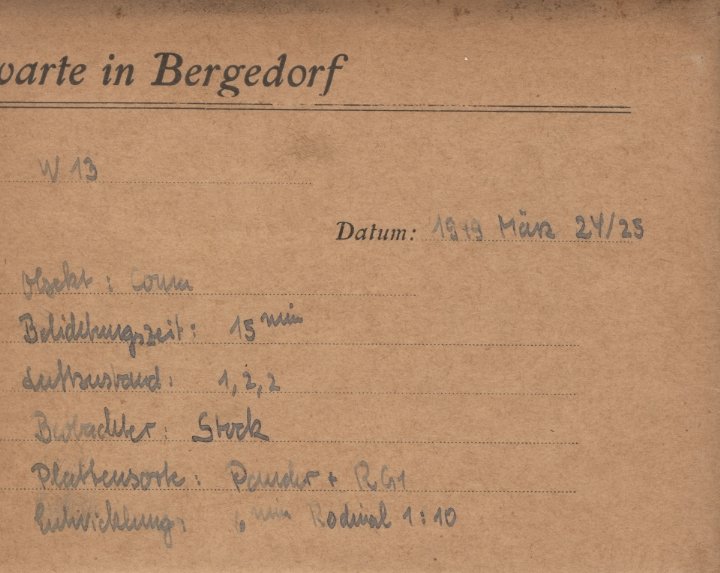 warte in Bergedorf
W 13
Datum: 1949 März 24/25
Objekt: Coma
Belichtungszeit: 15 min
Luftzustand: 1, 2, 2
Beobachter: Stock
Plattensorte: + RG1
Entwicklung: 6 min Rodinal 1:10